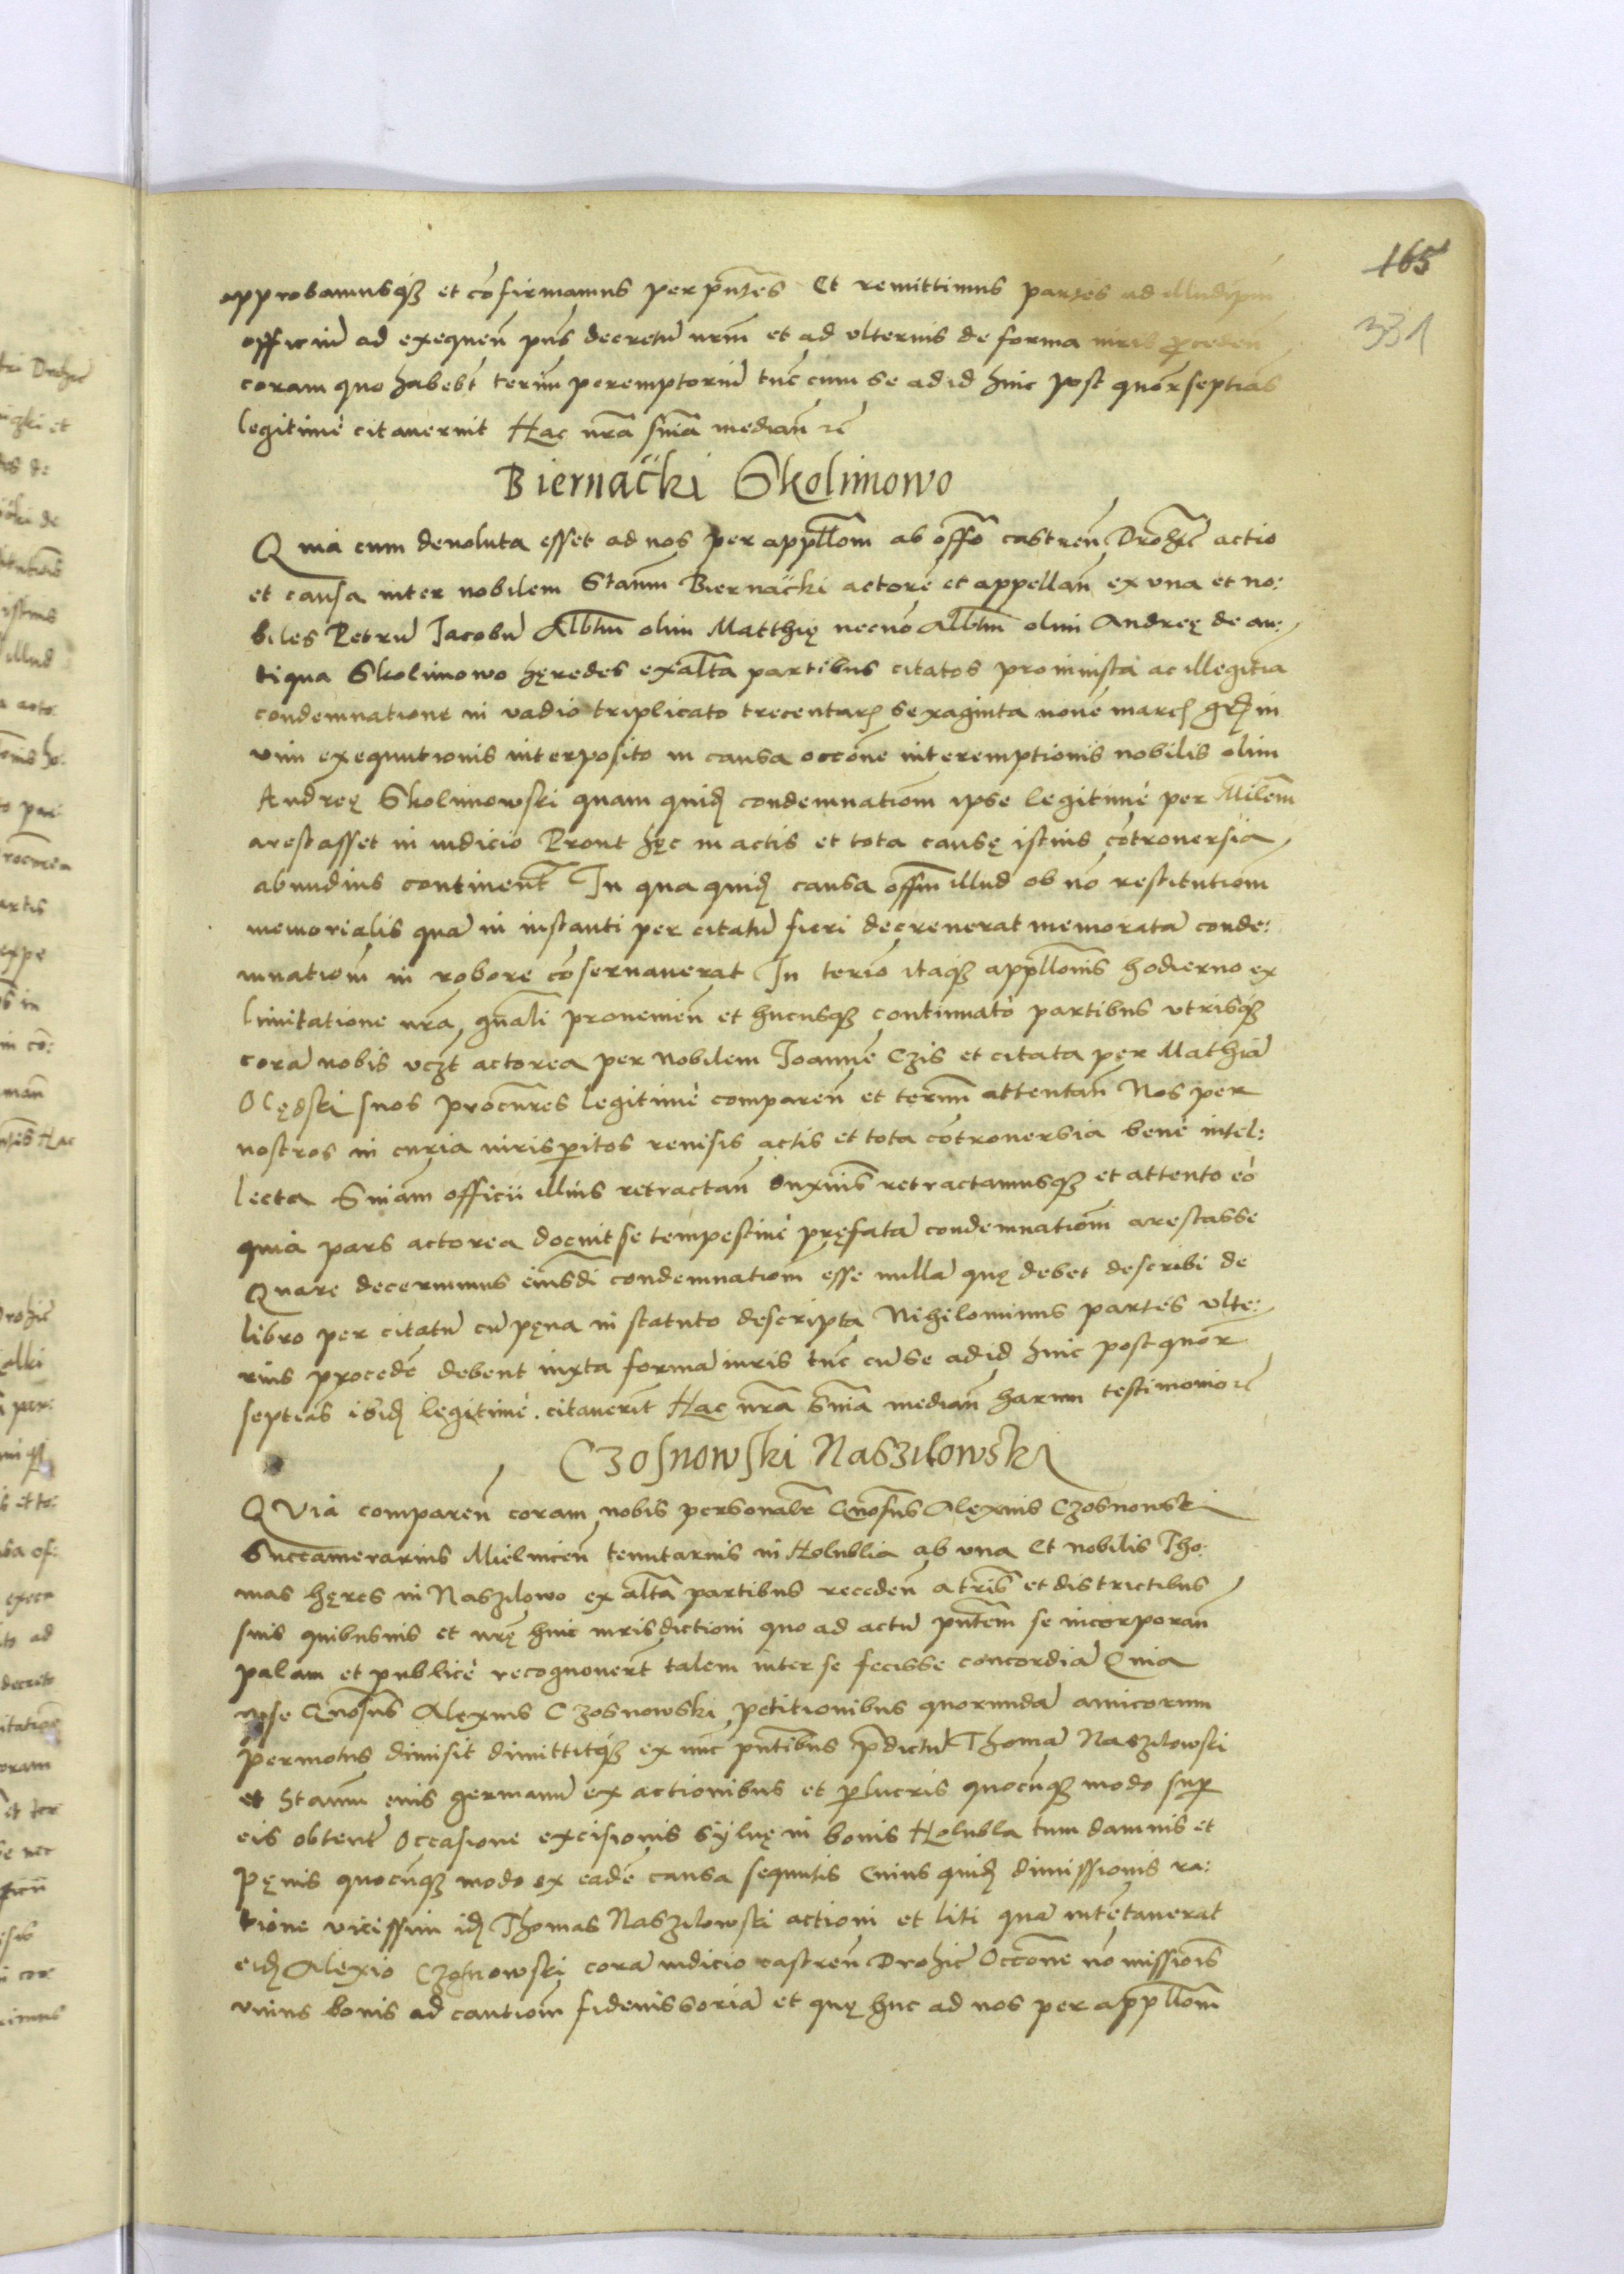 165
331
approbamusq3 et cōfirmamus per pn̄tes Et remittimus partes ad illud ipm̄
officiū ad exequen̄ pn̄s decretū nrm̄ et ad vlterius de forma iuris proceden̄
coram quo habebt̄ termī peremptoriū tūc cum se ad id hinc post quor̄ septias
legitimè citauerint Hac nrā snīa median̄ rc̄
Biernacki Skolimowo
Quia cum deuoluta esset ad nos per appllōm ab offō castren̄ Drohic̄ actio
et causa inter nobilem Stanm̄ Biernacki actorē et appellan̄ ex vna et no:
biles Petrū Jacobū Albtm̄ olim Matthię necnō Albtm̄ olim Andreę de an:
tiqua Skolimowo hęredes ex altā partibus citatos pro iniusta ac illegitīa
condemnatione in vadio triplicato trecentarƺ sexaginta nouē marcƺ grƺ in
vim exequutionis interposito in causa occōne interemptionis nobilis olim
Andreę Skolimowski quam quidƺ condemnatiom̄ ipse legitimè per Milēm
arestasset in iudicio Prout hęc in actis et tota causę istius cōtrouersia
abundius continent̄ In qua quidƺ causa offm̄ illud ob nō restitutiom̄
memorialis quā in instanti per citatū fieri decreuerat memoratā conde:
mnatiom̄ in robore cōseruauerat In termīo itaq3 appllōnis hodierno ex
limitatione nrā gn̄ali prouenien̄ et hucusq3 continuato partibus vtrisq3
corā nobis vcƺt actorea per nobilem Joannē Czis et citata per Mathiā
Olędski suos procurēs legitimè comparen̄ et termm̄ attentan̄ Nos per
nostros in curia iurisperitos reuisis actis et tota cōtrouersia benè intel:
lecta Snīam officii illius retractan̄ duxim̄s retractamusq3 et attento eò
quia pars actorea docuit se tempestiuè pręfatā condemnatiom̄ arestasse
Quare decernimus eiusdī condemnatiom̄ esse nullā quę debet describi de
libro per citatū cū pęna in statuto descripta Nihilominus partes vlte:
rius procedē debent iuxta formā iuris tūc cū se ad id hinc post quor̄
septias ibidƺ legitimè citauerīt Hac nrā Snīa median̄ harum testimonio rc̄
Czosnowski Naszilowski
QVia comparen̄ coram nobis personalr̄ Gnōsus Alexius Czosnowski
Succamerarius Mielnicen̄ tenutarius in Holublia ab vna Et nobilis Tho:
mas hęres in Naszilowo ex altā partibus receden̄ a trīs et districtibus
suis quibusuis et nrę huic iurisdictioni quo ad actū pn̄tem se incorporan̄
palam et publicè recognouert̄ talem inter se fecisse concordiā Quia
ipse Gnōsus Alexius Czosnowski petitionibus quorundā amicorum
permotus dimisit dimittitq3 ex nūc pn̄tibus p̄dictū Thomā Naszilowski
et Stanm̄ eius germanū ex actionibus et perlucris quocūq3 modo super
eis obtent̄ Occasione excisionis syluę in bonis Holubla tum damnis et
pęnis quocūq3 modo ex eadē causa sequutis Cuius quidƺ dimissionis ra:
tione vicissim idƺ Thomas Naszilowski actioni et liti quā intētauerat
eidƺ Alexio Czosnowski corā iudicio castren̄ Drohic̄ Occōne nō missiois̄
vnius bouis ad cautiom̄ fideiussoriā et quę huc ad nos per appllōm